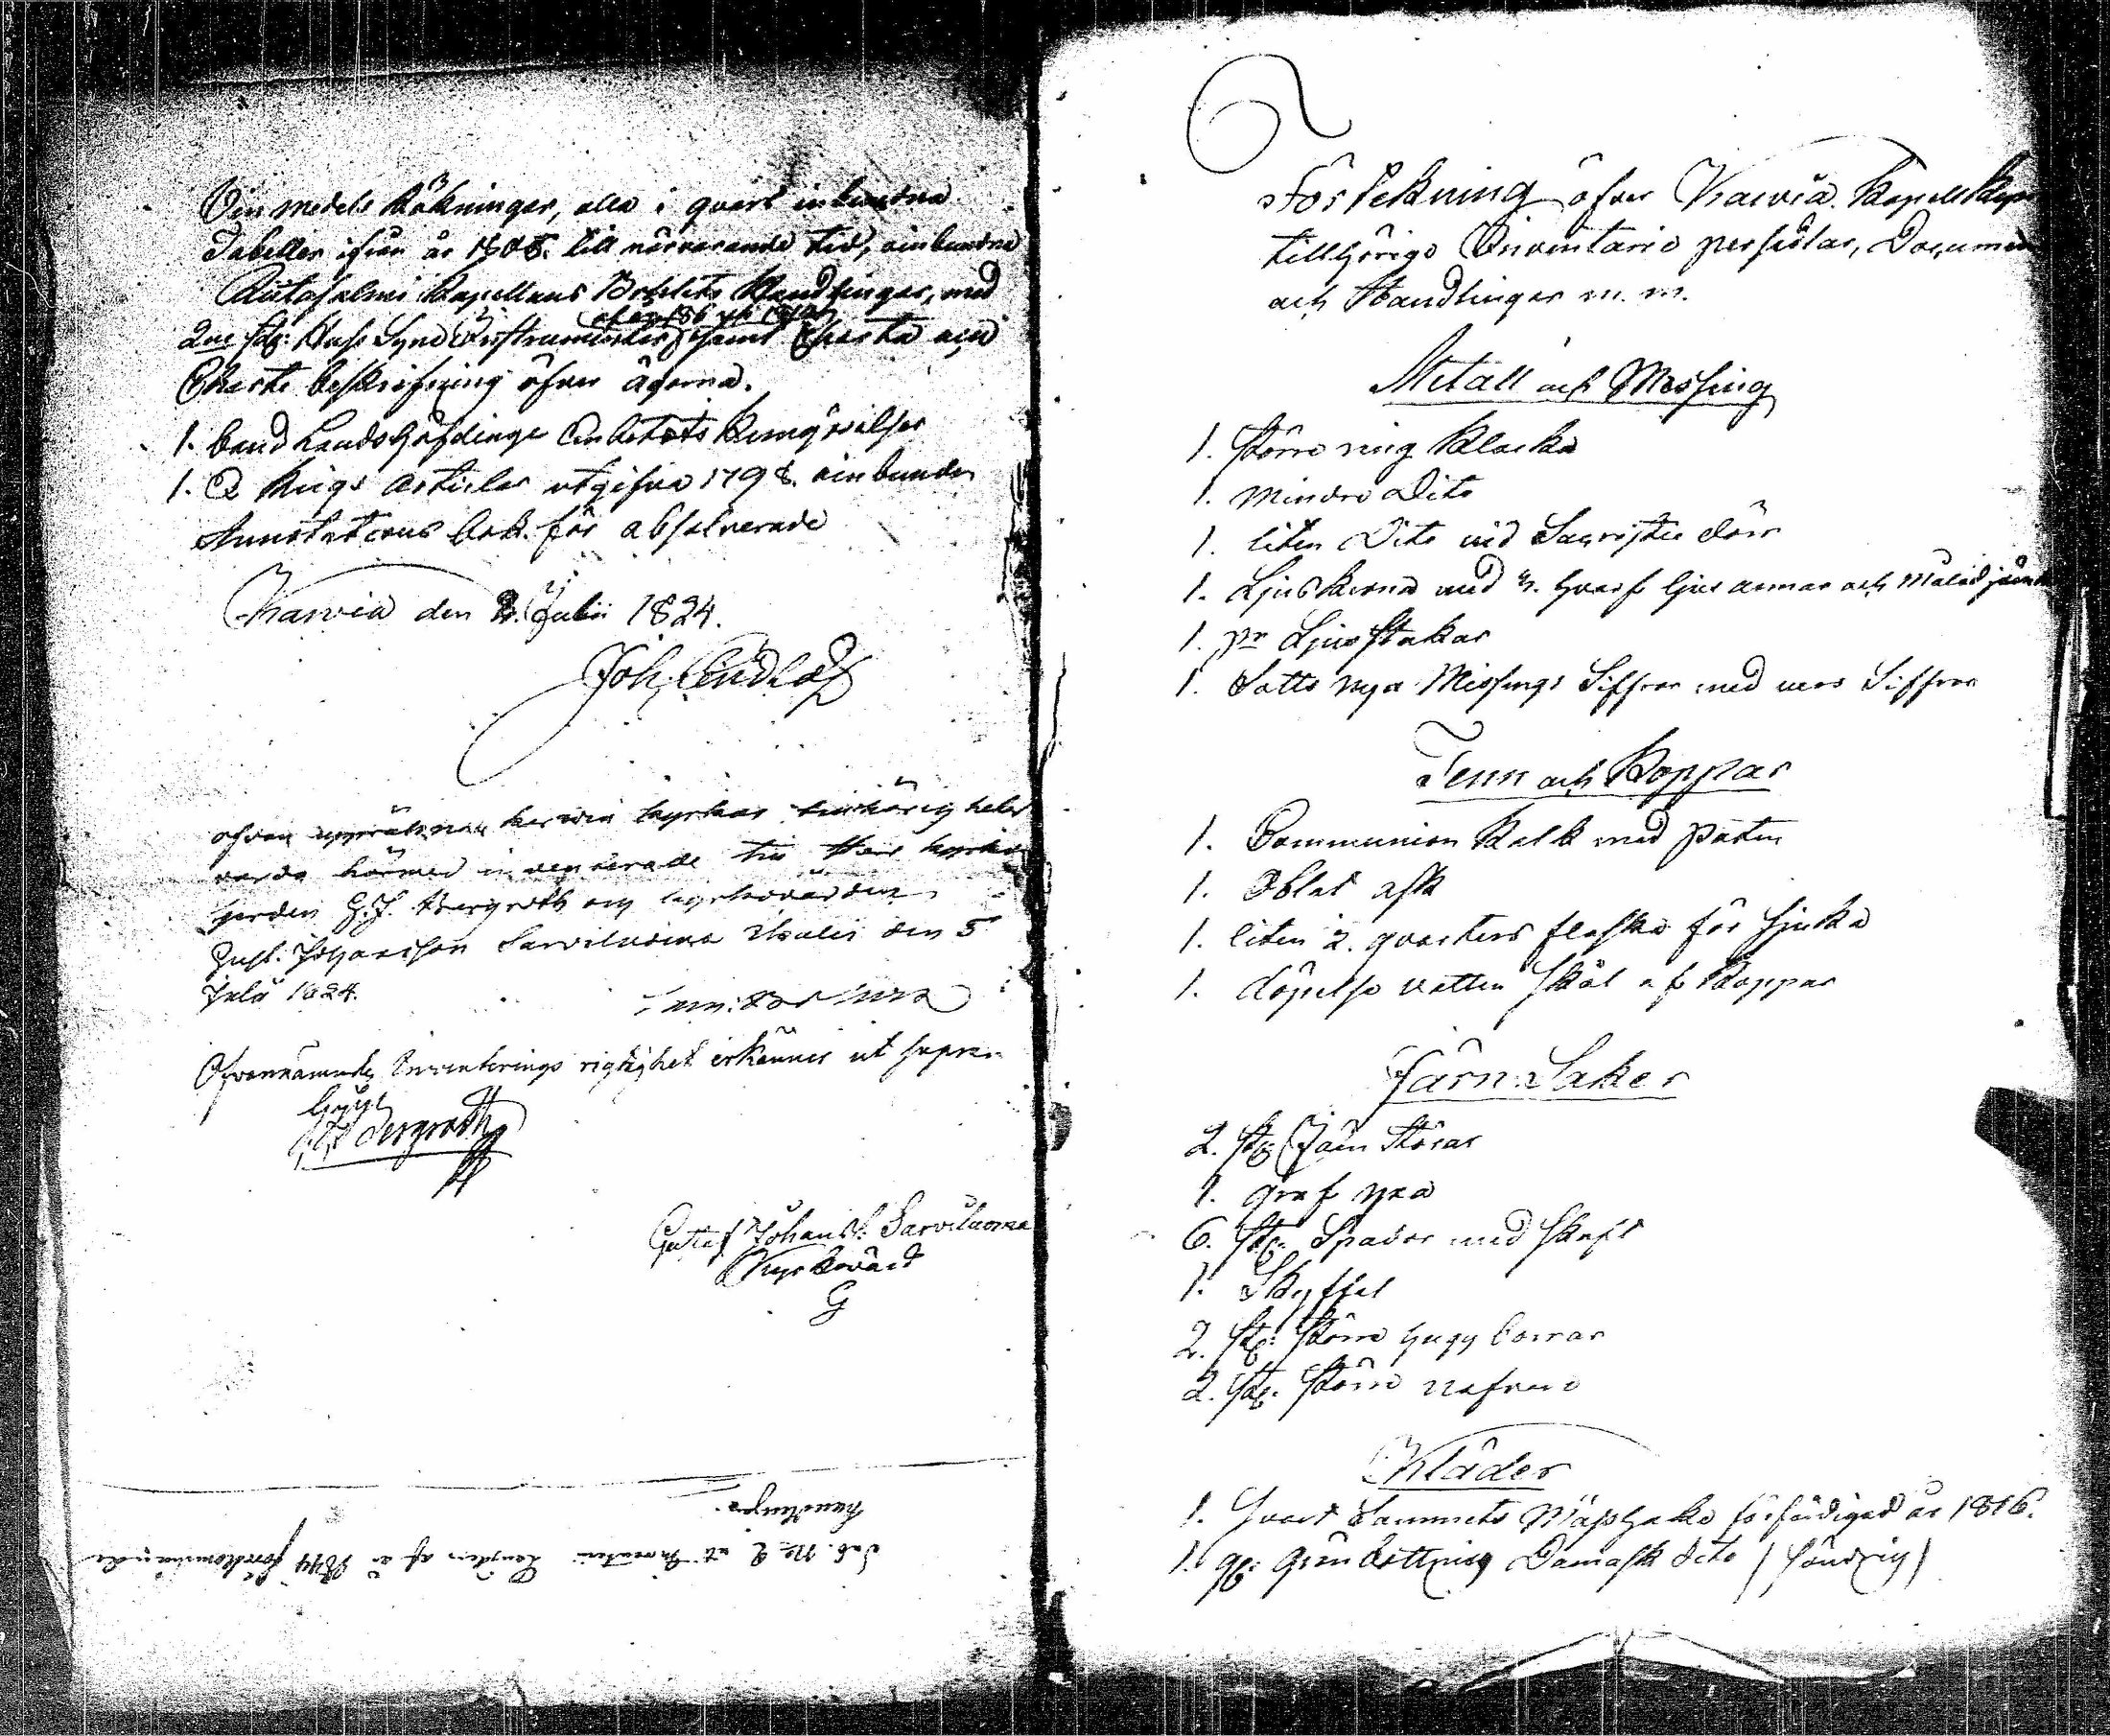 Vin medels Räkninger, alla i qvart inbundna
Tabeller ifrån år 1805. till närvarande tid, ainbundna
Kapellans Bohlets Handlinger, med
2ne st: Husse Syne Instrumenter, samt Charta och
Charte beskrifning öfver ägorna.
1. band Landshöfdinge Embetets Kungörelser
1. D Krigs Articlar utgifna 1798. ainbunden
Annotations bok för absolverade
Karvia den 2. Julii 1824.
Joh. Lindlöf
ofvan uppräknade Karvia kyrkas tillhörigheter
varda härmed inventerade till Herr
G. J. Bergroth och kyrkovärden
Gust. Johansson Sarviluoma Ikalis den 5
Julii 1824.
Ofvannämnde Inventerings rigtighet erkännes ut supra.
Bergroth
Gustaf Johanss: Sarviluoma
Kyrkovärd
G
Lab. No 2 uti Inventarii Längden af år 1844 förekommande
handlingar.
Förtekning öfver Karvia Kapell
tillhörige Inventarie persedlar, Documen
och Handlingar m. m.
Metall och Messing
1. större ring Klocka
1. Mindre Dito
1. liten Dito vid Sacristie dörr
1. Ljuskrona med 2. hvarf ljus armar och Målad
1. pr Ljusstakar
1. Satts nya Messings Siffror med vers Siffror
Tenn och Koppar
1. Communion Kalk med paten
1. Oblat ask
1. liten 2. qvarters flaska för sjuka
1. döpelse vatten skål af Koppar
Järn Saker
2. st: Järn störar
1. graf yxa
6. st: Spador med skaft
1. Skyffel
2. st: större hugg borrar
2. st: större nafrare
Kläder
1. Svart Sammets Mässhake förfärdigad år 1816.
1. gl: grön bottning Damask dito / söndrig /